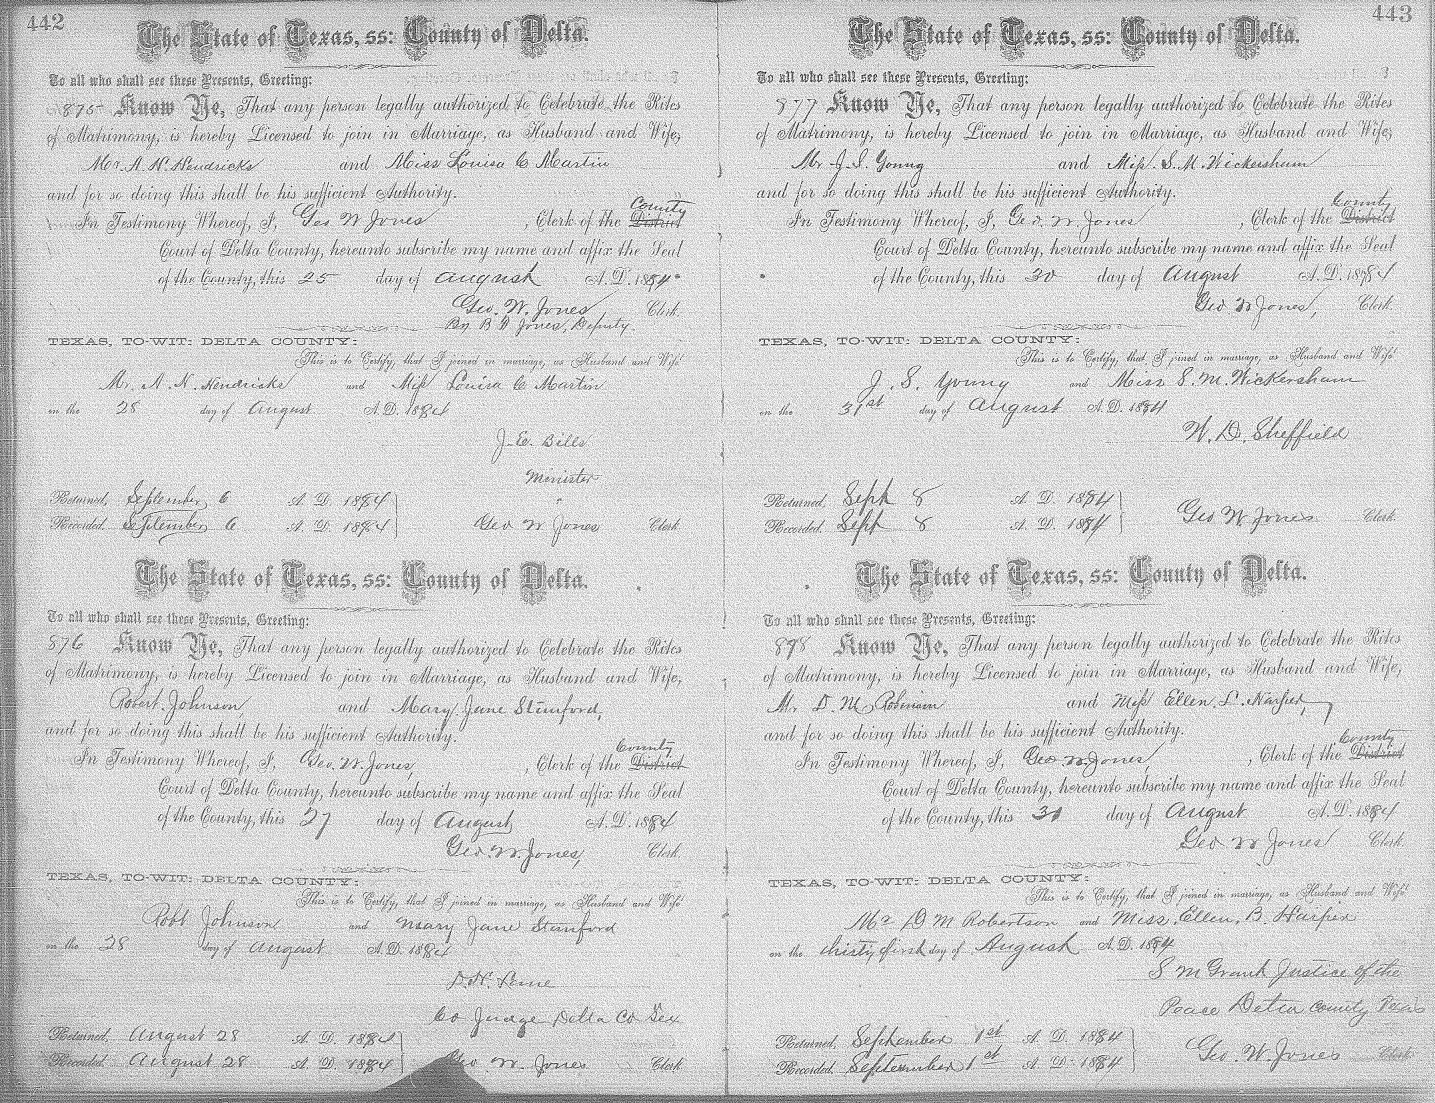 442
The State of Texas, ss: County of Delta.
To all who shall see these Presents, Greeting:
875 Know Ye, That any person legally authorized to Celebrate the Rites
of Matrimony, is hereby Licensed to join in Marriage, as Husband and Wife,
Mr. A. N. Hendricks and Miss Louisa C Martin
and for so doing this shall be his sufficient Authority.
County
In Testimony Whereof, I, Geo W Jones, Clerk of the District
Court of Delta County, hereunto subscribe my name and affix the Seal
of the County, this 25 day of August A. D. 1884.
Geo. W. Jones Clerk.
By B Jones, Deputy.
TEXAS, TO-WIT: DELTA COUNTY:
This is to Certify, that I joined in marriage, as Husband and Wife
Mr. A. N. Hendricks and Miss Louisa C Martin
on the 28 day of August A. D. 1884
J. E. Bills
Minister
Returned, September 6 A. D. 1884
Recorded, September 6 A. D. 1884 Geo W Jones Clerk
The State of Texas, ss: County of Delta.
To all who shall see these Presents, Greeting:
876 Know Ye, That any person legally authorized to Celebrate the Rites
of Matrimony, is hereby Licensed to join in Marriage, as Husband and Wife,
Robert Johnson and Mary Jane Stinford,
and for so doing this shall be his sufficient Authority.
County
In Testimony Whereof, I, Geo. W. Jones, , Clerk of the District
Court of Delta County, hereunto subscribe my name and affix the Seal
of the County, this 27 day of August A. D. 1884
Geo. W. Jones, Clerk.
TEXAS, TO-WIT: DELTA COUNTY:
This is to Certify, that I joined in marriage, as Husband and Wife
Robt Johnson and Mary Jane Stinford
on the 28 day of August A. D. 1884
Co Judge Delta Co Tex
Returned, August 28 A. D. 1884
Recorded, August 28 A. D. 1884 Geo. W. Jones Clerk
443
The State of Texas, ss: County of Delta.
To all who shall see these Presents, Greeting:
877 Know Ye, That any person legally authorized to Celebrate the Rites
of Matrimony, is hereby Licensed to join in Marriage, as Husband and Wife,
Mr J. S. Young and Miss. S. M. Wickersham
and for so doing this shall be his sufficient Authority.
County
In Testimony Whereof, I, Geo. W. Jones , Clerk of the District
Court of Delta County, hereunto subscribe my name and affix the Seal
of the County, this 30 day of August A. D. 1884
Geo W Jones, Clerk.
TEXAS, TO-WIT: DELTA COUNTY:
This is to Certify, that I joined in marriage, as Husband and Wife
J. S. Young and Miss S. M. Wickersham
on the 31st day of August A. D. 1884
W. D. Sheffield
Returned, Sept 8 A. D. 1884
Recorded. Sept 8 A. D. 1884 Geo W Jones Clerk.
The State of Texas, ss: County of Delta.
To all who shall see these Presents, Greeting:
878 Know Ye, That any person legally authorized to Celebrate the Rites
of Matrimony, is hereby Licensed to join in Marriage, as Husband and Wife,
Mr. D. M. Robinson and Miss Ellen. L.
and for so doing this shall be his sufficient Authority.
County
In Testimony Whereof, I, Geo W Jones , Clerk of the District
Court of Delta County, hereunto subscribe my name and affix the Seal
of the County, this day of August A. D. 1884
Geo W Jones Clerk.
TEXAS, TO-WIT: DELTA COUNTY:
This is to Certify, that I joined in marriage, as Husband and Wife
Mr D M Robertson and Miss. Ellen. B. Harper
on the thirty first day of August A. D. 1884
S M Grant Justice of the
Peace Delta County Texas
Returned, September 1st A. D. 1884
Recorded. September 1st A. D. 1884 Geo. W. Jones Clerk